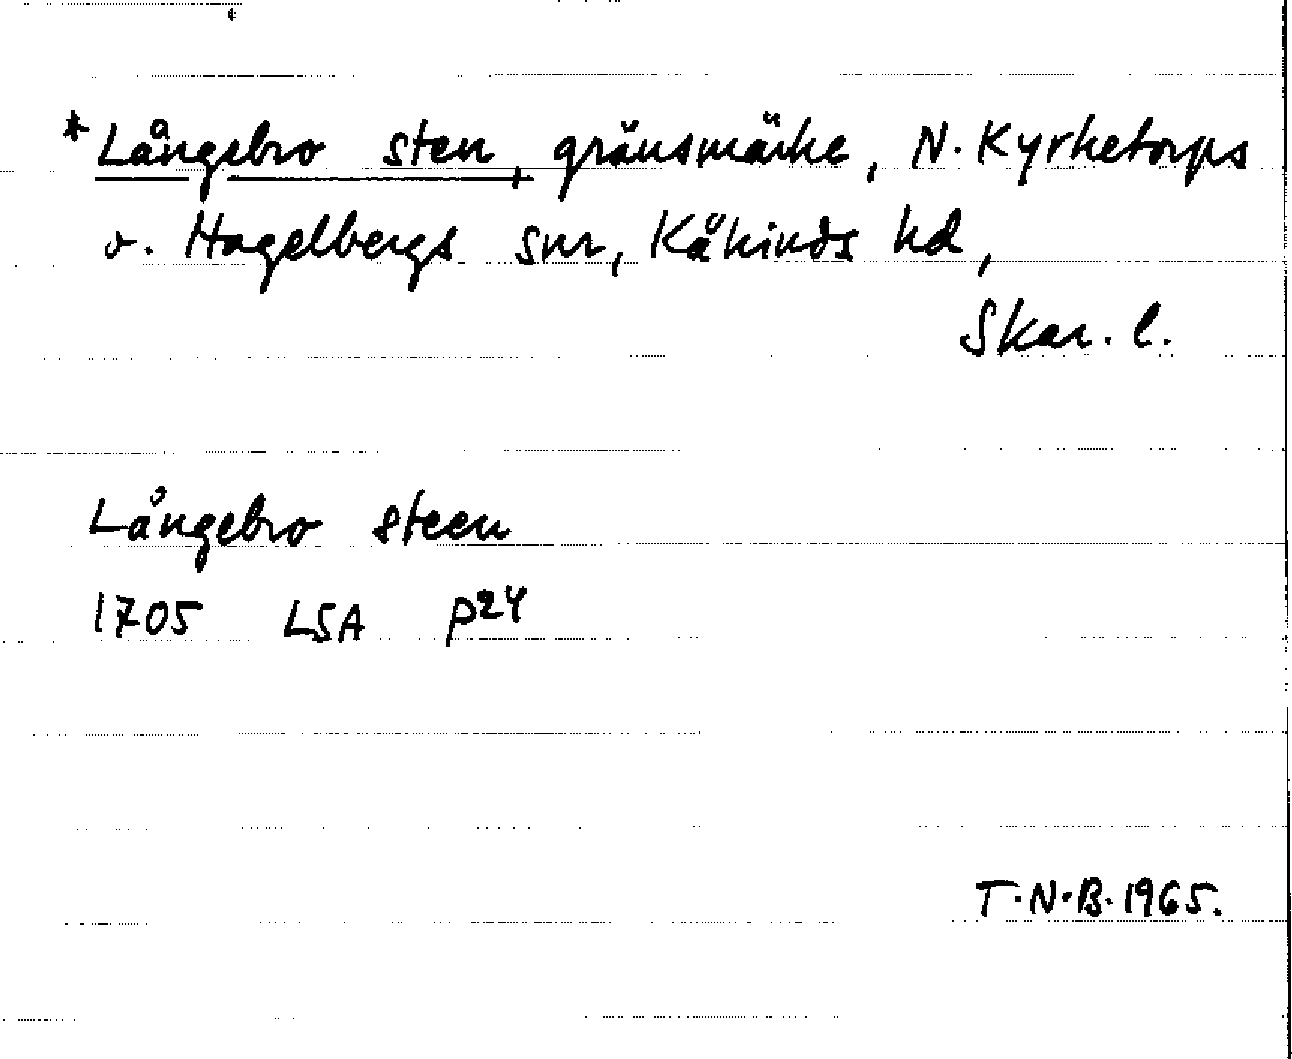 * Långebro sten, gränsmärke, N. Kyrketorps
o. Hagelbergs snr, Kåkinds hd,
Skar. l.
Långebro steen
1705 LSA P24
T.N.B. 1965.